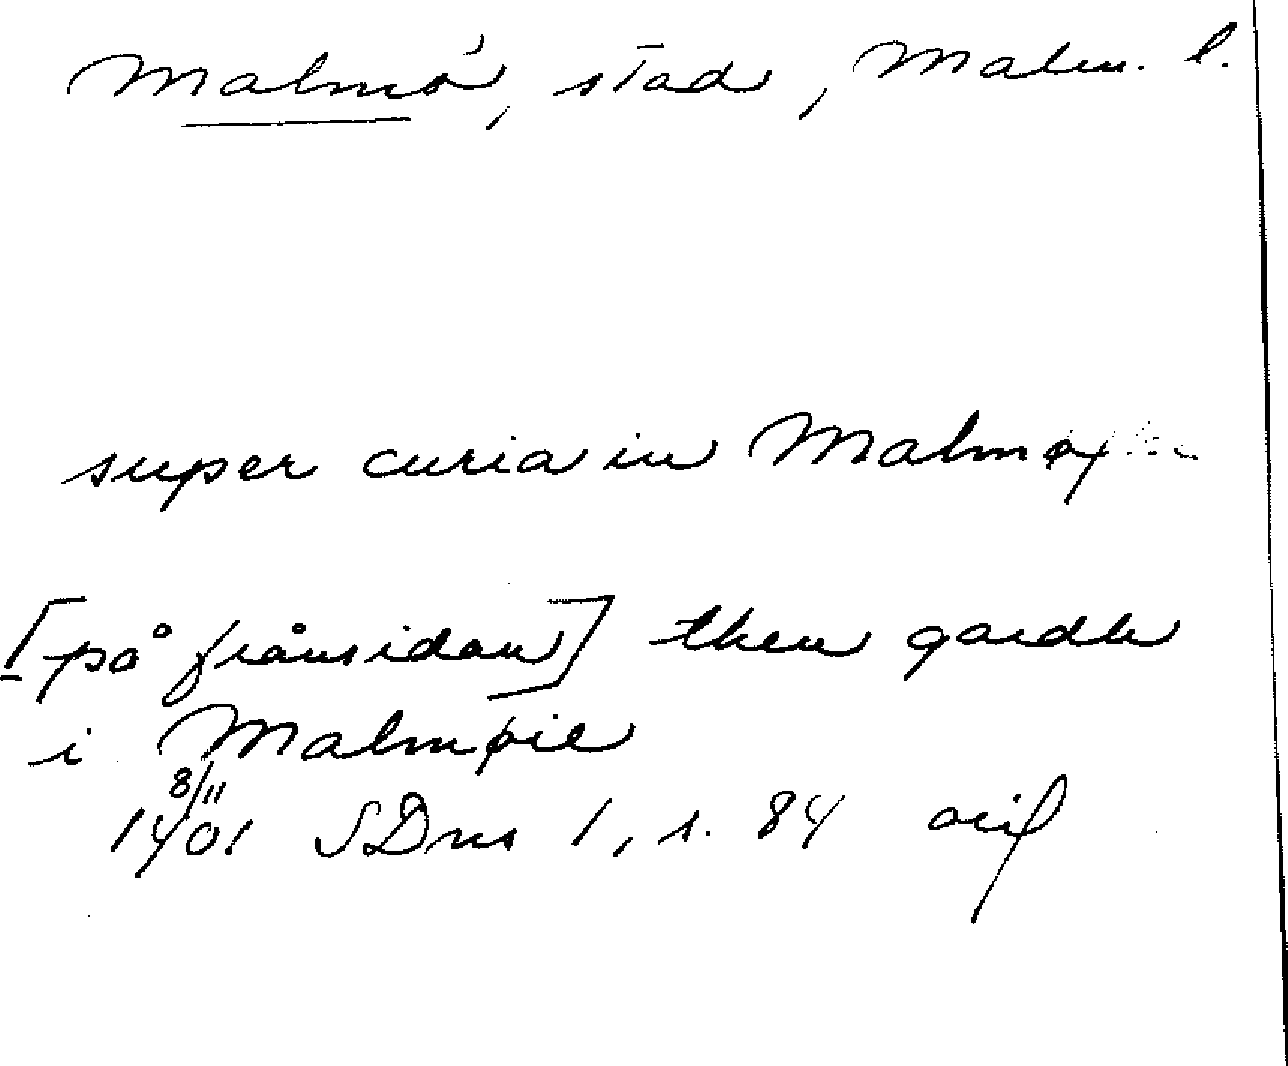 Malmö, stad, Malm. l.
super curia in Malmøy
[på frånsidan] then gardh
i Malmøie
8/11
1401 SDns 1, s. 84 orig